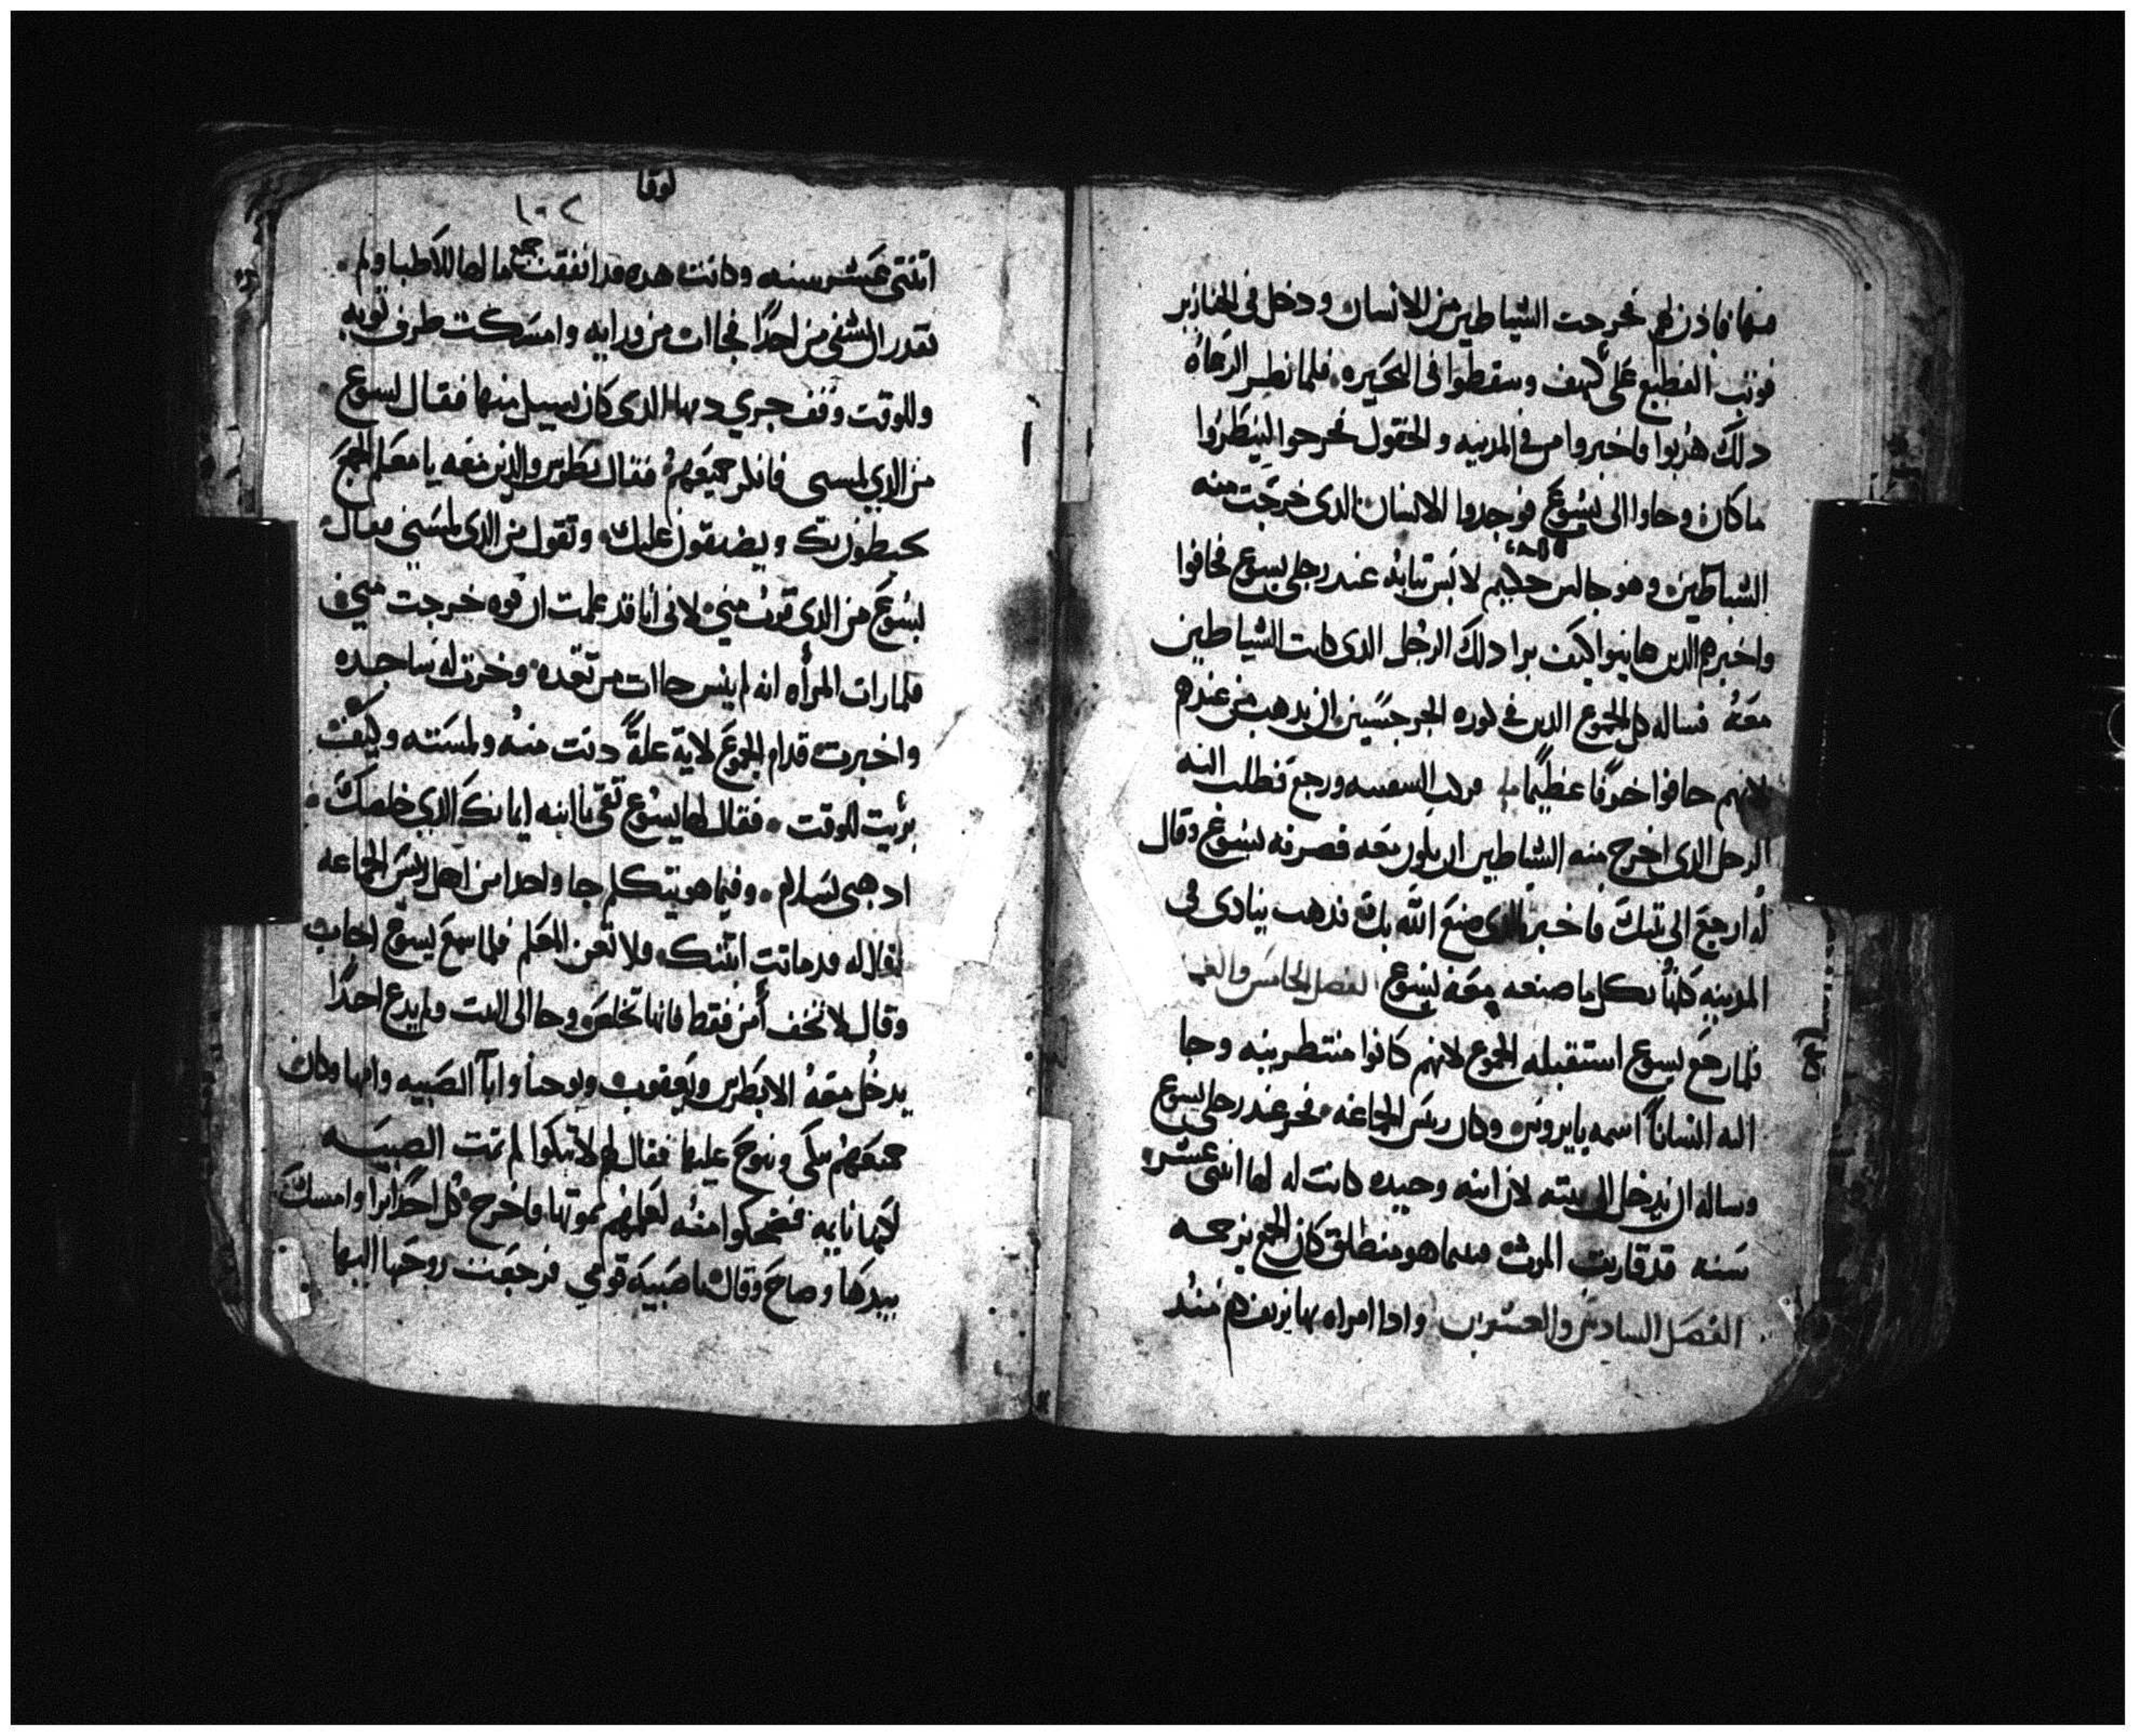 منها فاذن لهم فخرجت الشياطين من الانسان ودخل في الخنازير
فوثب القطيع على كهف وسقطوا في البحيره فلما نظر الرعاه
دلك هربوا واخبروا من في المدينه والحقول فخرجوا لينظروا
ما كان وجاوا الى يسوع فوجدوا الانسان الدى خرجت منه
الشياطين وهو جالس حليم لابس ثيابه عند رجلي يسوع فخافوا
واخبرهم الدين عاينوا كيف برا دلك الرجل الدى كانت الشياطين
معه فساله كل الجموع الدين في كوره الجرجسيين ان يدهب من عندهم
لانهم خافوا خوفا عظيما فركب السفينه ورجع فطلب اليه
الرجل الدى اخرج منه الشياطين ان يكون معه فصرفه يسوع وقال
له ارجع الى بيتك فاخبر بالدى صنع الله بك فدهب ينادى في
المدينه كلها بكل ما صنعه معه يسوع الفصل الخامس والعشر
فلما رجع يسوع استقبله الجموع لانهم كانوا منتظرينه وجا
اليه انسانا اسمه يايروس وكان ريس الجماعه فخر عند رجلي يسوع
وساله ان يدخل الى بيته لان ابنه وحيده كانت له لها اثنى عشر
سنه قد قاربت الموت فبينما هو منطلق كان الجمع يزحمه
الفصل السادس والعشرين وادا امراه بها نزيف دم مند
لوقا
١٠٢
اثنتى عشر سنه وكانت هده قد انفقت جميع مالها للاطبا ولم
تقدر تشفى من احدا فجاات من ورايه وامسكت طرف ثوبه
وللوقت وقف جري دمها الدى كان يسيل منها فقال يسوع
من الدي لمسنى فانكر جميعهم فقال بطرس والدين معه يا معلم الجمع
يحيطون بك ويضيقون عليك وتقول من الدى لمسني فقال
يسوع من الدى قرب مني لانى انا قد علمت ان قوه خرجت مني
فلما رات المراه انه لم ينس جاات مرتعده وخرت له ساجده
واخبرت قدام الجموع لاية علة دنت منه ولمسته وكيف
بريت للوقت فقال لها يسوع ثقى يا ابنه ايمانك الدي خلصك
ادهبى بسلام وفيما هو يتكلم جا واحدا من اهل ريس الجماعه
فقال له قد ماتت ابنتك فلا تعن المعلم فلما سمع يسوع اجاب
وقال لا تخف أمن فقط فانها تخلص وجا الى البيت ولم يدع احدا
يدخل معه الا بطرس ويعقوب ويوحنا وابا الصبيه وامها وكان
جميعهم تبكى وتنوح عليها فقال لهم لا تبكوا لم تمت الصبيه
لكنها نايمه فضحكوا منه لعلمهم بموتها فاخرج كل احد برا وامسك
بيدها وصاح وقال يا صبيه قومي فرجعت روحها اليها